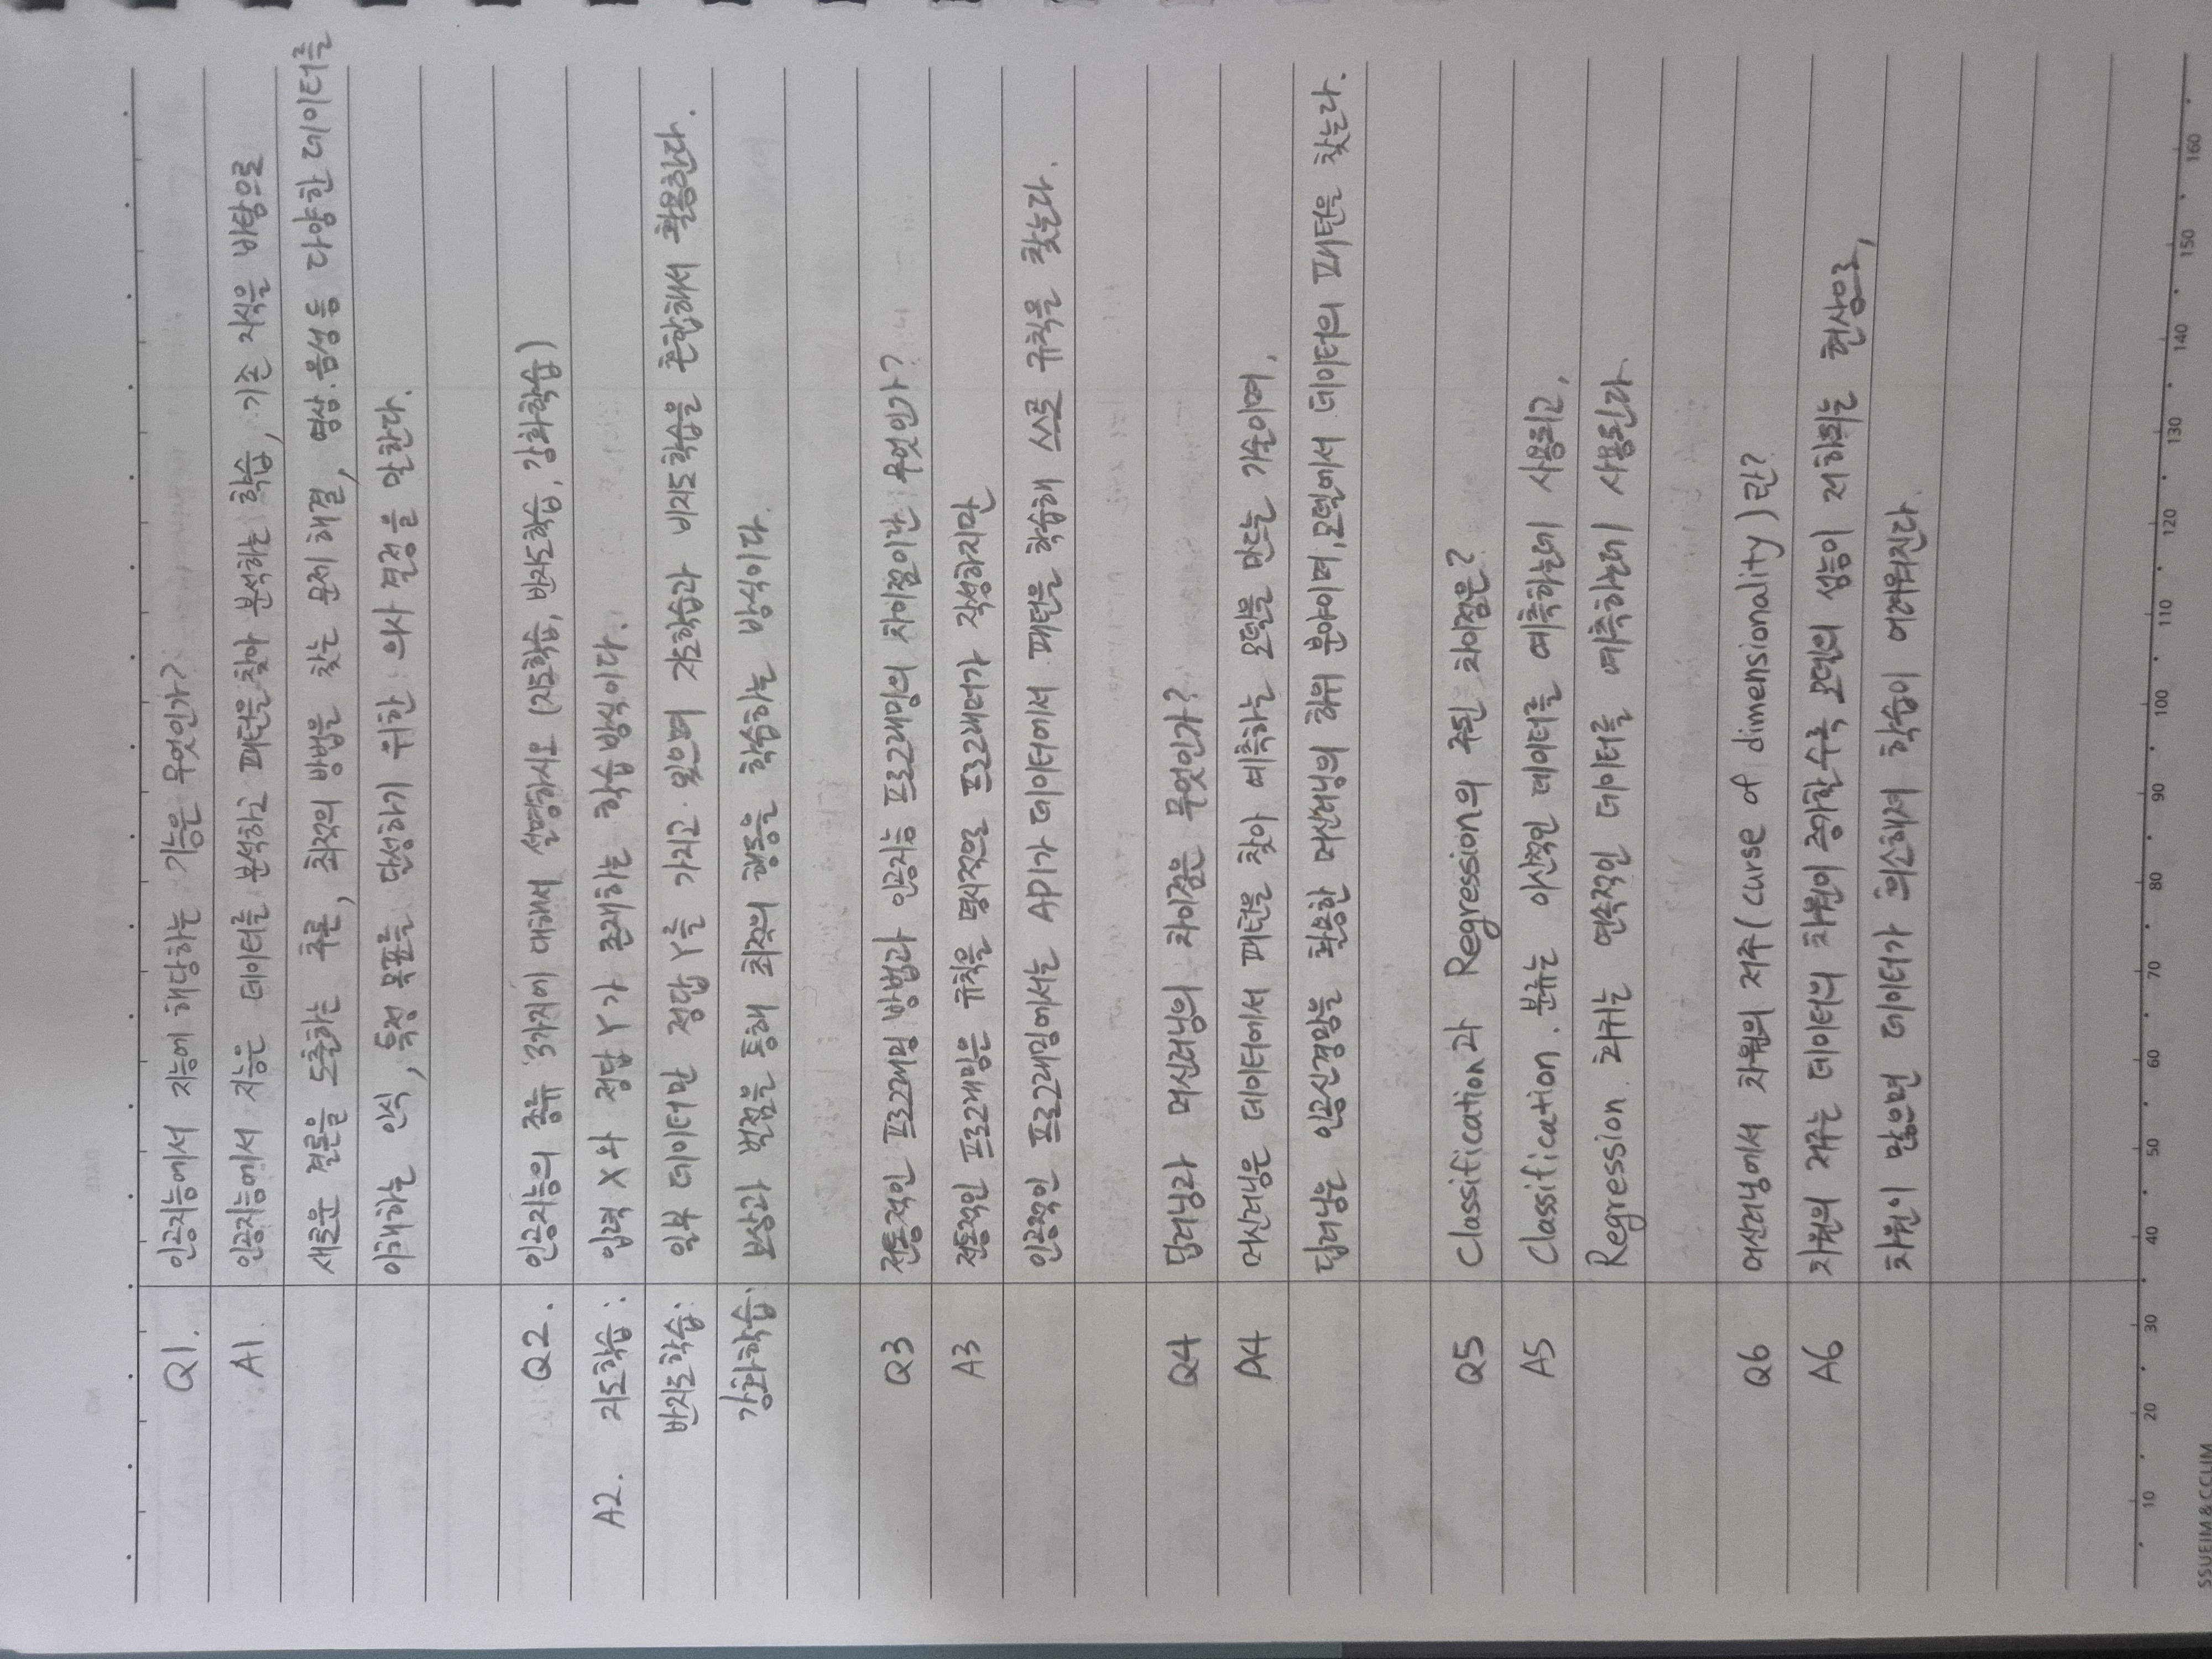 Q1. 인공지능에서 지능에 해당하는 기능은 무엇인가?
A1. 인공지능에서 지능은 데이터를 분석하고 패턴을 찾아 분석하는 학습, 기존 지식을 바탕으로
새로운 결론을 도출하는 추론, 최적의 방법을 찾는 문제 해결, 영상.음성 등 다양한 데이터를
이해하는 인식, 특정 목표를 달성하기 위한 의사 결정을 말한다.
Q2. 인공지능의 종류 3가지에 대해서 설명하시오 (지도학습, 반지도학습, 강화학습)
A2. 지도학습 : 입력 X와 정답 Y가 존재하는 학습방식이다.
반지도학습: 일부 데이터만 정답 Y를 가지고 있으며 지도학습과 비지도학습을 혼합해서 활용한다.
강화학습: 보상과 벌점을 통해 최적의 행동을 학습하는 방식이다.
Q3 전통적인 프로그래밍 방법과 인공지능 프로그래밍의 차이점이란 무엇인가?
A3 전통적인 프로그래밍은 규칙을 명시적으로 프로그래머가 작성하지만
인공적인 프로그래밍에서는 API가 데이터에서 패턴을 학습해 스스로 규칙을 찾는다.
Q4 딥러닝과 머신러닝의 차이점은 무엇인가?
A4 머신러닝은 데이터에서 패턴을 찾아 예측하는 모델을 만드는 기술이며,
딥러닝은 인공신경망을 활용한 머신러닝의 하위 분야이며, 모델에서 데이터의 패턴을 찾는다.
Q5 Classification과 Regression의 주된 차이점은?
A5 Classification. 분류는 이산적인 데이터를 예측하는데 사용되고,
Regression. 회귀는 연속적인 데이터를 예측하는데 사용된다.
Q6 머신러닝에서 차원의 저주(curse of dimensionality)란?
A6 차원의 저주는 데이터의 차원이 증가할수록 모델의 성능이 저하되는 현상으로,
차원이 많으면 데이터가 희소해져 학습이 어려워진다.
10 20 30 40 50 60 70 80 90 100 110 120 130 140 150 160
SSUEIM & CCLIM